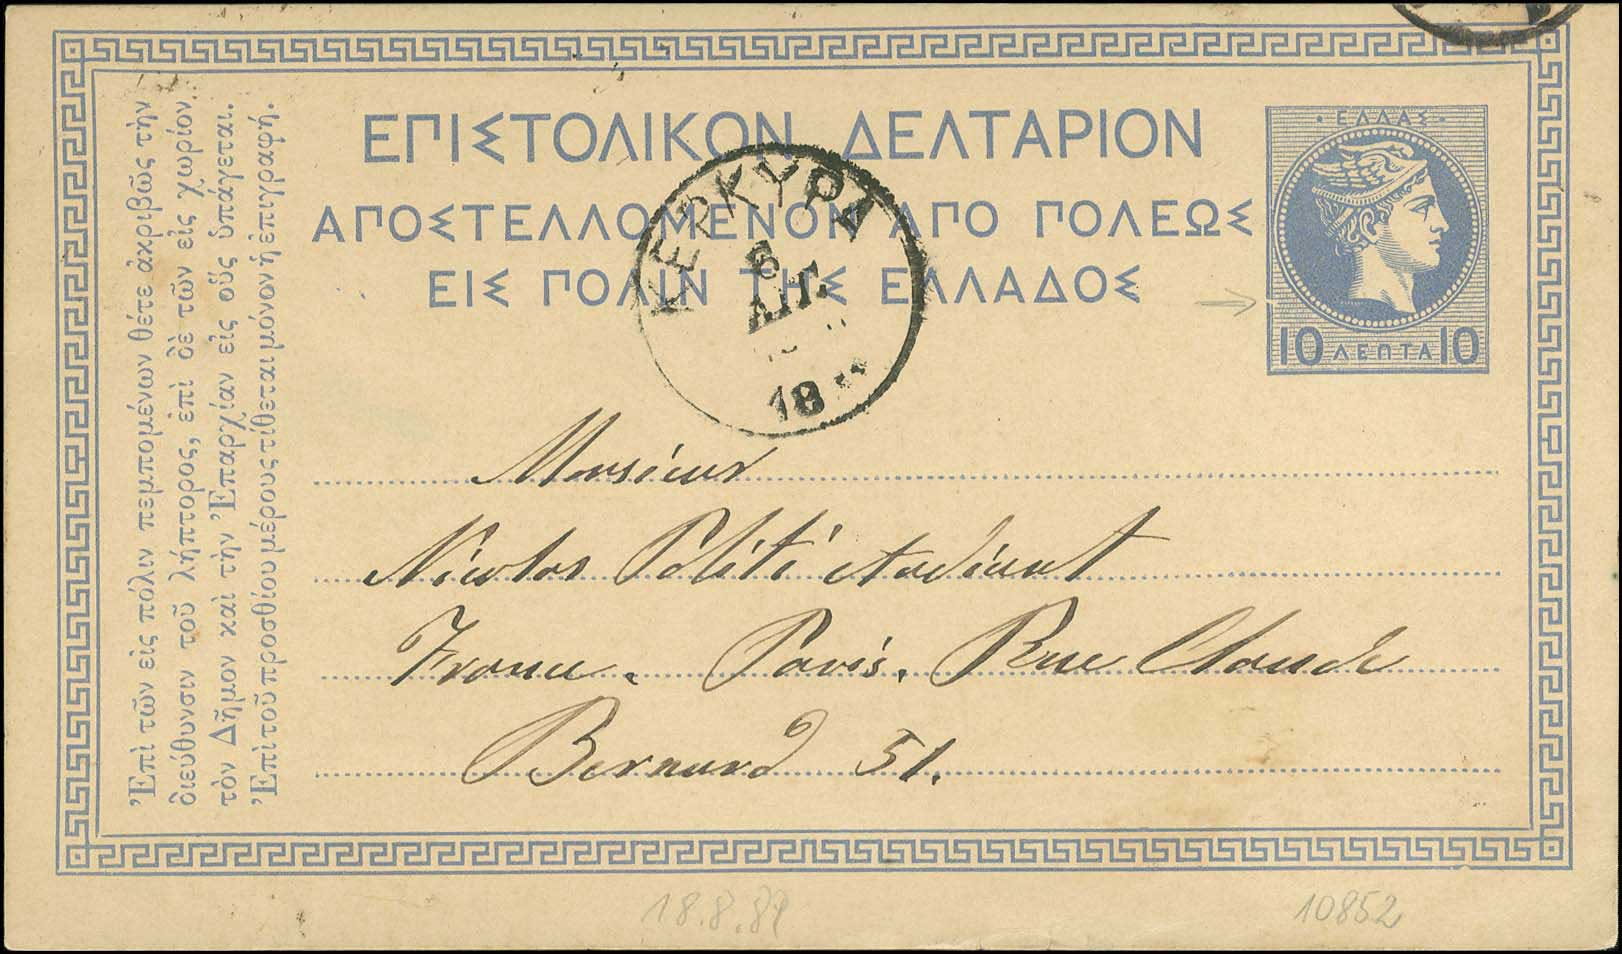 ΕΠΙΣΤΟΛΙΚΟΝ ΔΕΛΤΑΡΙΟΝ
ΑΠΟΣΤΕΛΛΟΜΕΝΟΝ ΑΠΟ ΠΟΛΕΩΣ
ΕΙΣ ΠΟΛΙΝ ΤΗΣ ΕΛΛΑΔΟΣ
·ΕΛΛΑΣ·
10 ΛΕΠΤΑ 10
ΚΕΡΚΥΡΑ
6
ΑΥΓ.
18
Ἐπὶ τῶν εἰς πόλιν πεμπομένων θέτε ἀκριβῶς τὴν
διεύθυνσιν τοῦ λήπτορος, ἐπὶ δὲ τῶν εἰς χωρίον
τὸν Δῆμον καὶ τὴν Ἐπαρχίαν εἰς οὓς ὑπάγεται.
Ἐπὶ τοῦ προσθίου μέρους τίθεται μόνον ἡ ἐπιγραφή.
Monsieur
Nicolas Politi etudiant
France. Paris. Rue Claude
Bernard 51.
10852